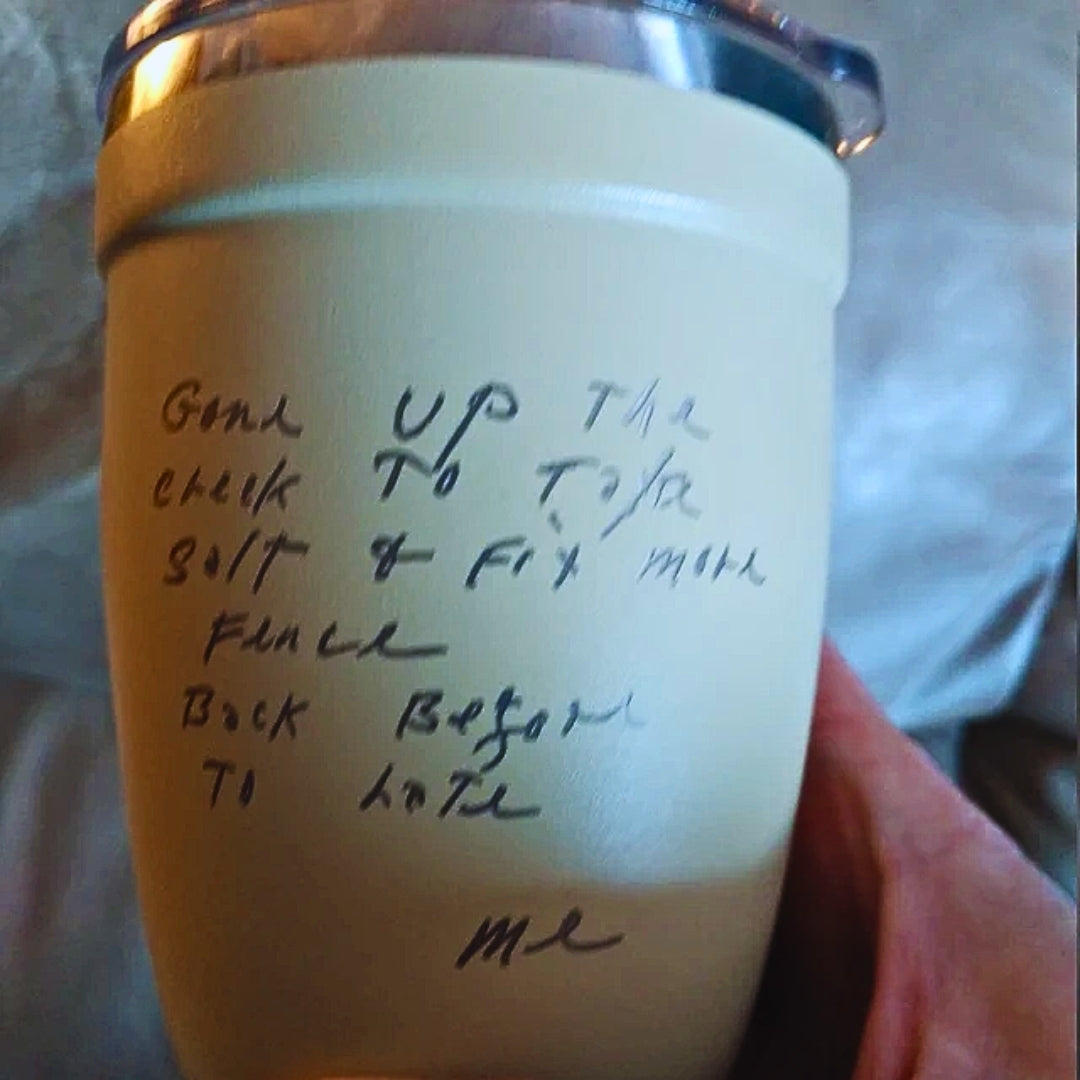 Gone UP The
creek To Take
Salt & Fix more
Fence
Back Before
To Late
me